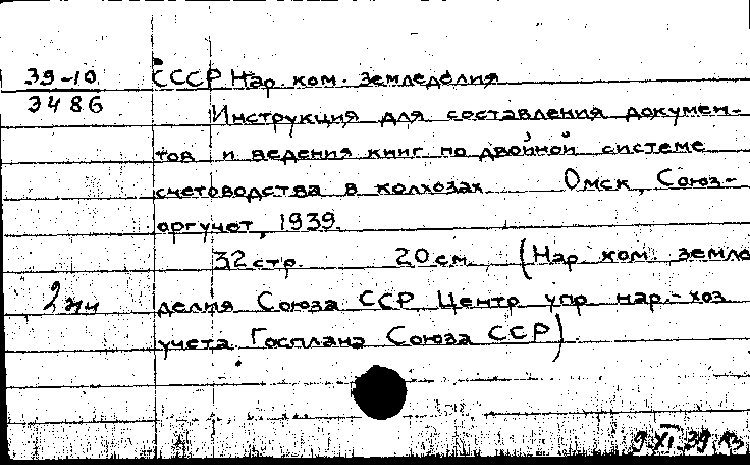 39-10
3486
СССР Нар. ком. земледелия
Инструкция для составления докумен-
тов и ведения книг по двойной системе
счетоводства в колхозах. Омск, Союз-
оргучет, 1939.
32 стр. 20 см. (Нар. ком. земле
делия Союза ССР. Центр. упр. нар.-хоз.
учета Госплана Союза ССР)
9 XI 39